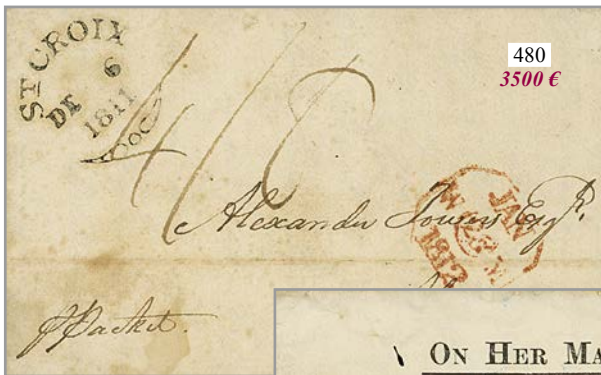 ST CROIX
DE 6
1811
480
3500 €
4/8
Alexander Towers Esqr.
JAN
1812
p Packet.
ON HER MA